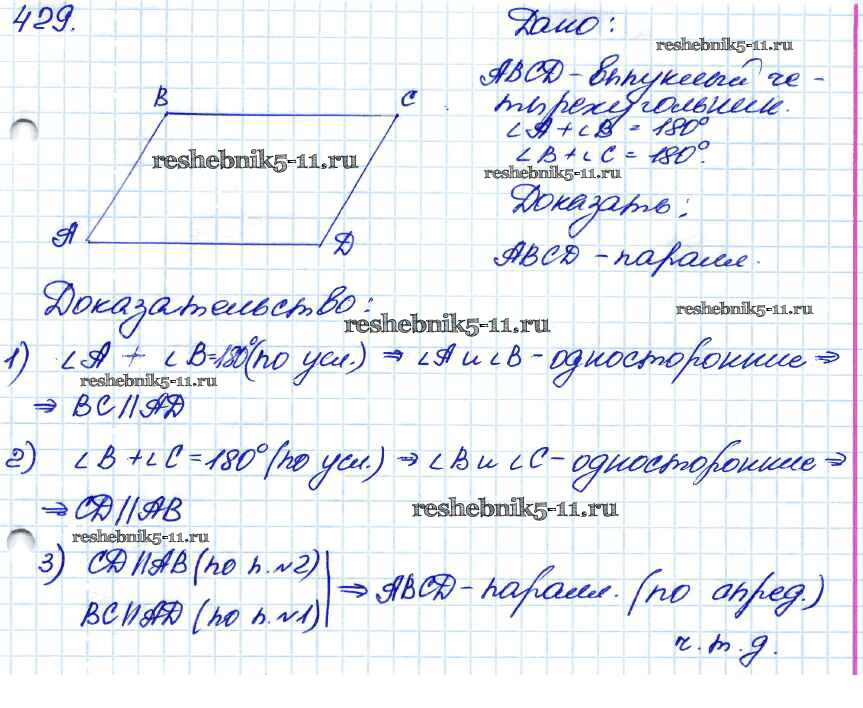 429.
Дано:
reshebnik5-11.ru
ABCD - выпуклый че-
тырехугольник.
∠A + ∠B = 180°
∠B + ∠C = 180°.
reshebnik5-11.ru
Доказать:
ABCD - паралл.
B
C
reshebnik5-11.ru
A
D
Доказательство:
reshebnik5-11.ru
reshebnik5-11.ru
1) ∠A + ∠B = 180° (по усл.) ⇒ ∠A и ∠B - односторонние ⇒
reshebnik5-11.ru
⇒ BC || AD
2) ∠B + ∠C = 180° (по усл.) ⇒ ∠B и ∠C - односторонние ⇒
⇒ CD || AB
reshebnik5-11.ru
reshebnik5-11.ru
3) CD || AB (по п. №2)
BC || AD (по п. №1)
⇒ ABCD - паралл. (по опред.)
ч.т.д.